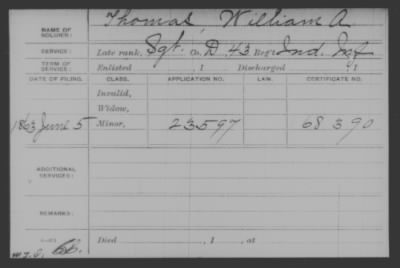 NAME OF SOLDIER: Thomas, William A.
SERVICE: Late rank, Sgt. Co. D, 43 Reg't Ind. Inf
TERM OF SERVICE: Enlisted , 1 Discharged , 1
DATE OF FILING. CLASS. APPLICATION NO. LAW. CERTIFICATE NO.
Invalid,
Widow,
1863 June 5 Minor, 23597 68390
ADDITIONAL SERVICES:
REMARKS:
Died , 1 , at